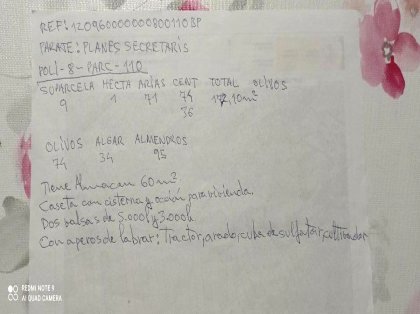 REF: 12096000000800110BP
PARATE: PLANES SECRETARIS
POLI-8-PARC-110
SUPARCELA HECTA ARIAS CENT TOTAL OLIVOS
9 1 71 74 172,10m²
36
OLIVOS ALGAR ALMENDROS
74 34 95
Tiene Almacen 60m².
Caseta con cisterna y opción para vivienda.
Dos balsas de 5.000l y 3.000l.
Con aperos de labrar: Tractor, arado, cuba de sulfatar, cultivador
REDMI NOTE 9
AI QUAD CAMERA